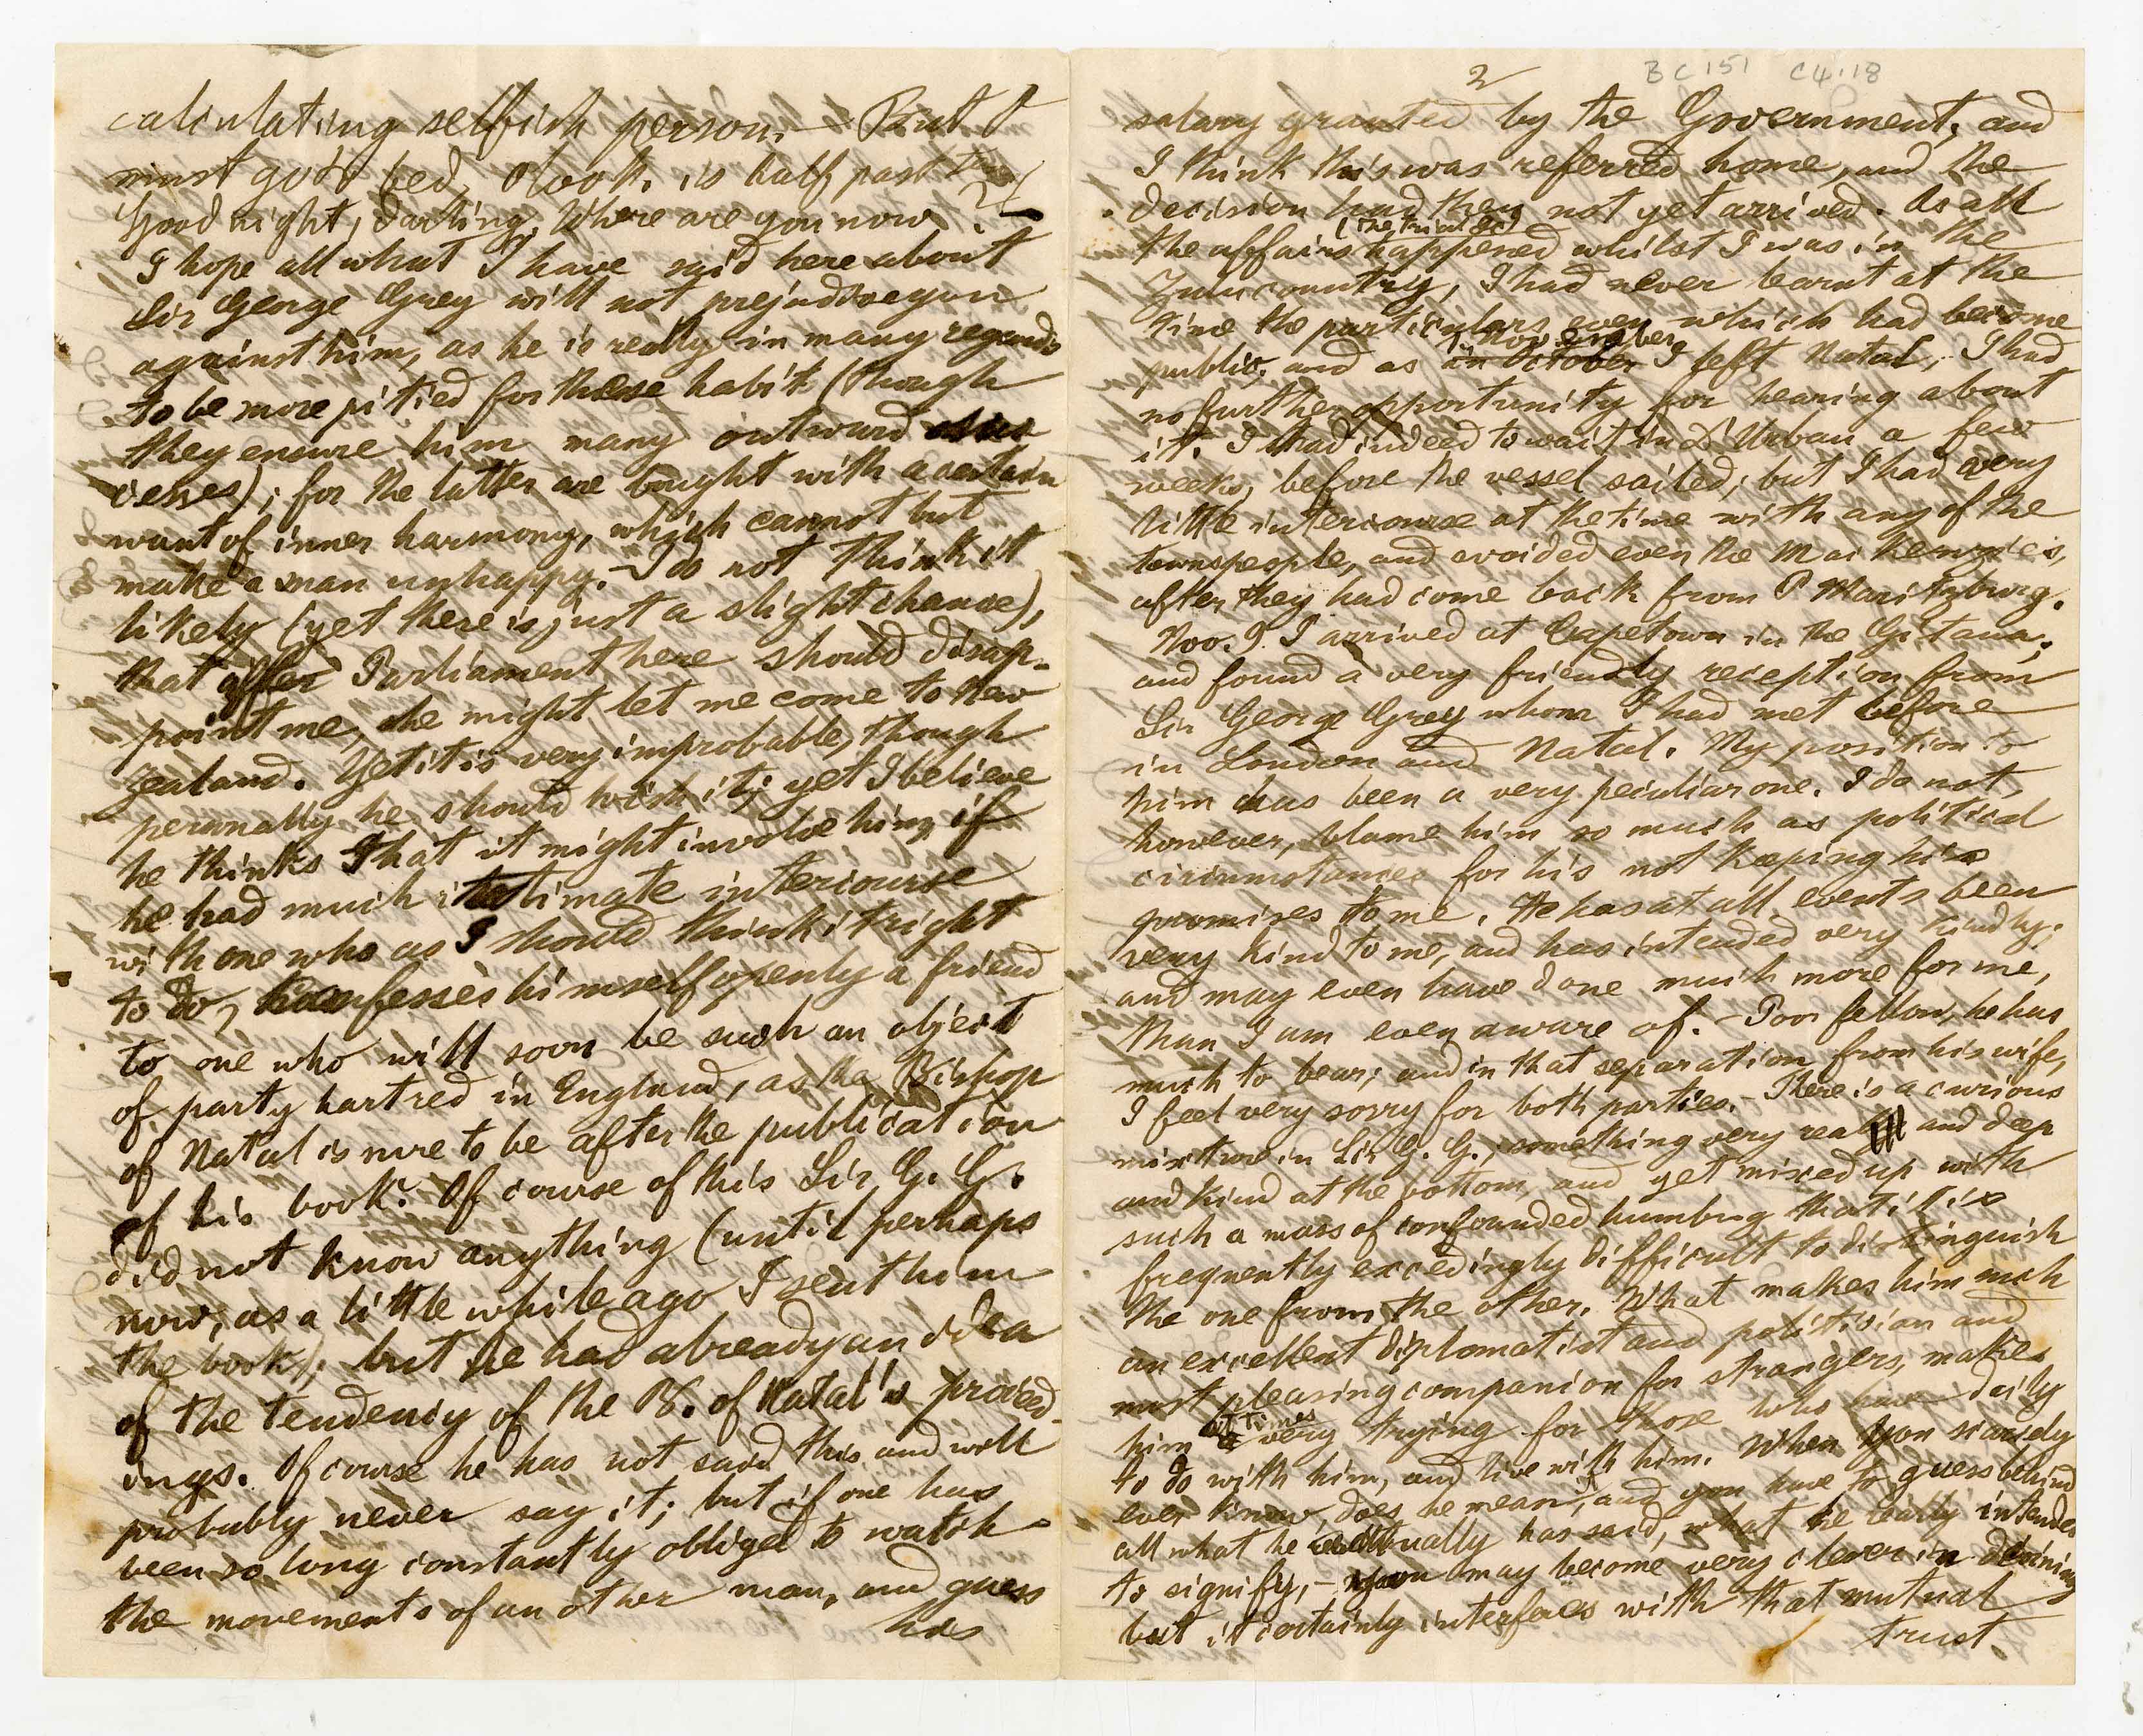 calculating selfish person. — But I
must go to bed, clock is half past two
Good night, darling. Where are you now?
I hope all what I have said here about
Sir George Grey will not prejudice you
against him, as he is really in many regards
to be more pitied for these habits (though
they ensure him many outward suc
cesses); for the latter are bought with a certain
want of inner harmony, which cannot but
make a man unhappy. — I do not think it
likely (yet there is just a slight chance),
that after Parliament here should disap-
point me, he might let me come to New
Zealand. Yet it is very improbable, though
personally he should wish it; yet I believe
he thinks that it might involve him, if
he had much intimate intercourse
with one who as I should think it right
to do, confesses himself openly a friend
to one who will soon be such an object
of party hartred in England, as the Bishop
of Natal is sure to be after the publication
of his book. Of course of this Sir G. G.
did not know anything (until perhaps
now, as a little while ago I sent him
the book); but he had already an idea
of the tendency of the B. of Natal's proceed-
ings. Of course he has not said this and will
probably never say it; but if one has
been so long constantly obliged to watch
the movements of an other man, and guess
his
BC 151 C4.18
2
salary granted by the Government, and
I think this was referred home, and the
decision had then not yet arrived. As all
the affairs (the trial &c) happened whilst I was in the
Zulu country, I had never learnt at the
time the particulars even which had become
public, and as in October November I left Natal, I had
no further opportunity for hearing about
it. I had indeed to wait in D'Urban a few
weeks, before the vessel sailed; but I had very
little intercourse at the time with any of the
townspeople, and avoided even the Mackenzies,
after they had come back from P Maritzburg.
Nov. 9. I arrived at Capetown in the Gitana,
and found a very friendly reception from
Sir George Grey whom I had met before
in London and Natal. My position to
him has been a very peculiar one. I do not,
however, blame him so much as political
circumstances for his not keeping his
promises to me. He has at all events been
very kind to me, and has intended very kindly,
and may even have done much more for me,
than I am even aware of. — Poor fellow, he has
much to bear; and in that separation from his wife,
I feel very sorry for both parties. — There is a curious
mixture in Sir G. G., something very real and deep
and kind at the bottom, and yet mixed up with
such a mass of confounded humbug that it is
frequently excedingly difficult to distinguish
the one from the other. What makes him such
an excellent diplomatist and politician and
most pleasing companion for strangers, makes
him at times very trying for those who have daily
to do with him, and live with him. When you scarcely
ever know, does he mean, and you have to guess behind
all what he actually has said, what he really intendes
to signify, — you may become very clever in divining
but it certainly interferes with that mutual
trust